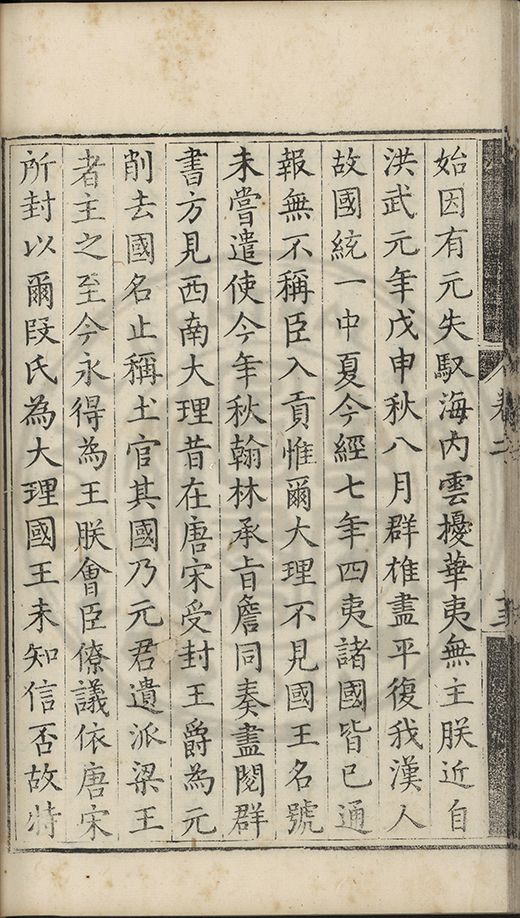 始因有元失馭海內雲擾華夷無主朕近自
洪武元年戊申秋八月群雄盡平復我漢人
故國統一中夏今經七年四夷諸國皆已通
報無不稱臣入貢惟爾大理不見國王名號
未嘗遣使今年秋翰林承旨詹同奏盡閱群
書方見西南大理昔在唐宋受封王爵為元
削去國名止稱土官其國乃元君遺派梁王
者主之至今永得為王朕會臣僚議依唐宋
所封以爾段氏為大理國王未知信否故特